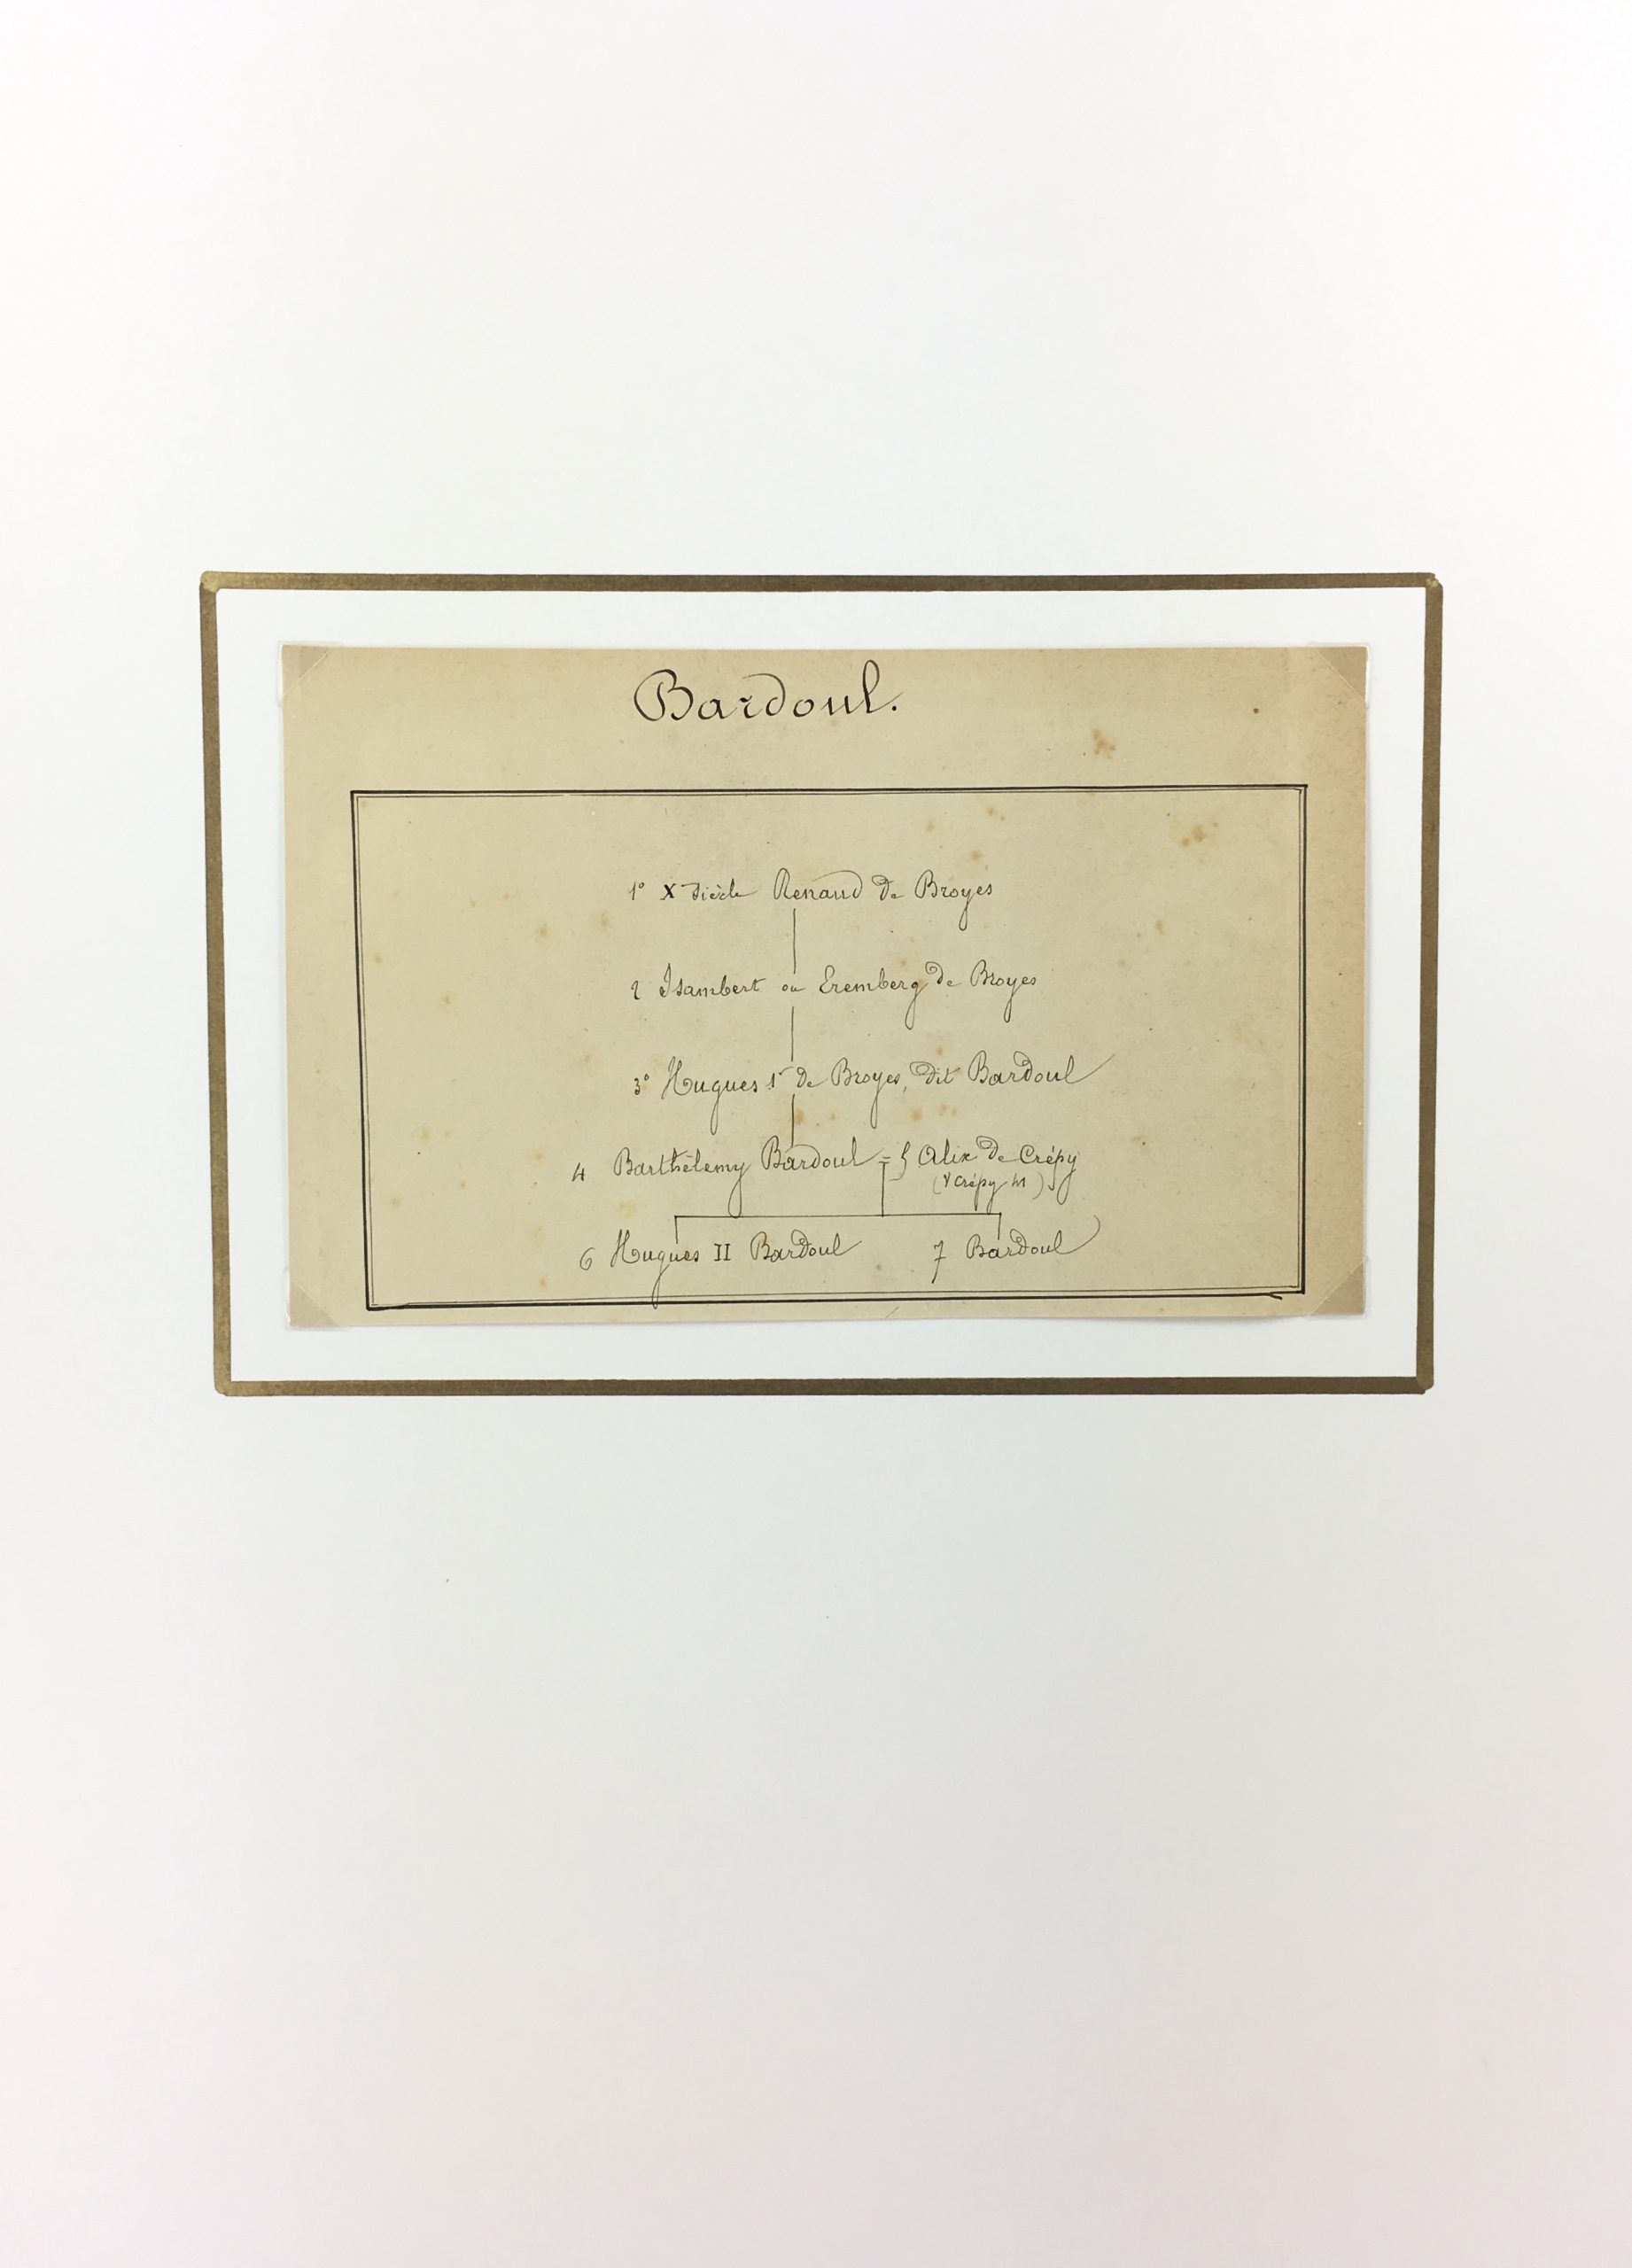 Bardoul.
1° X siècle Renaud de Broyes
2 Isambert ou Eremberg de Broyes
3° Hugues 1r de Broyes, dit Bardoul
4 Barthélemy Bardoul = 5 Alix de Crépy
(V Crépy )
6 Hugues II Bardoul 7 Bardoul